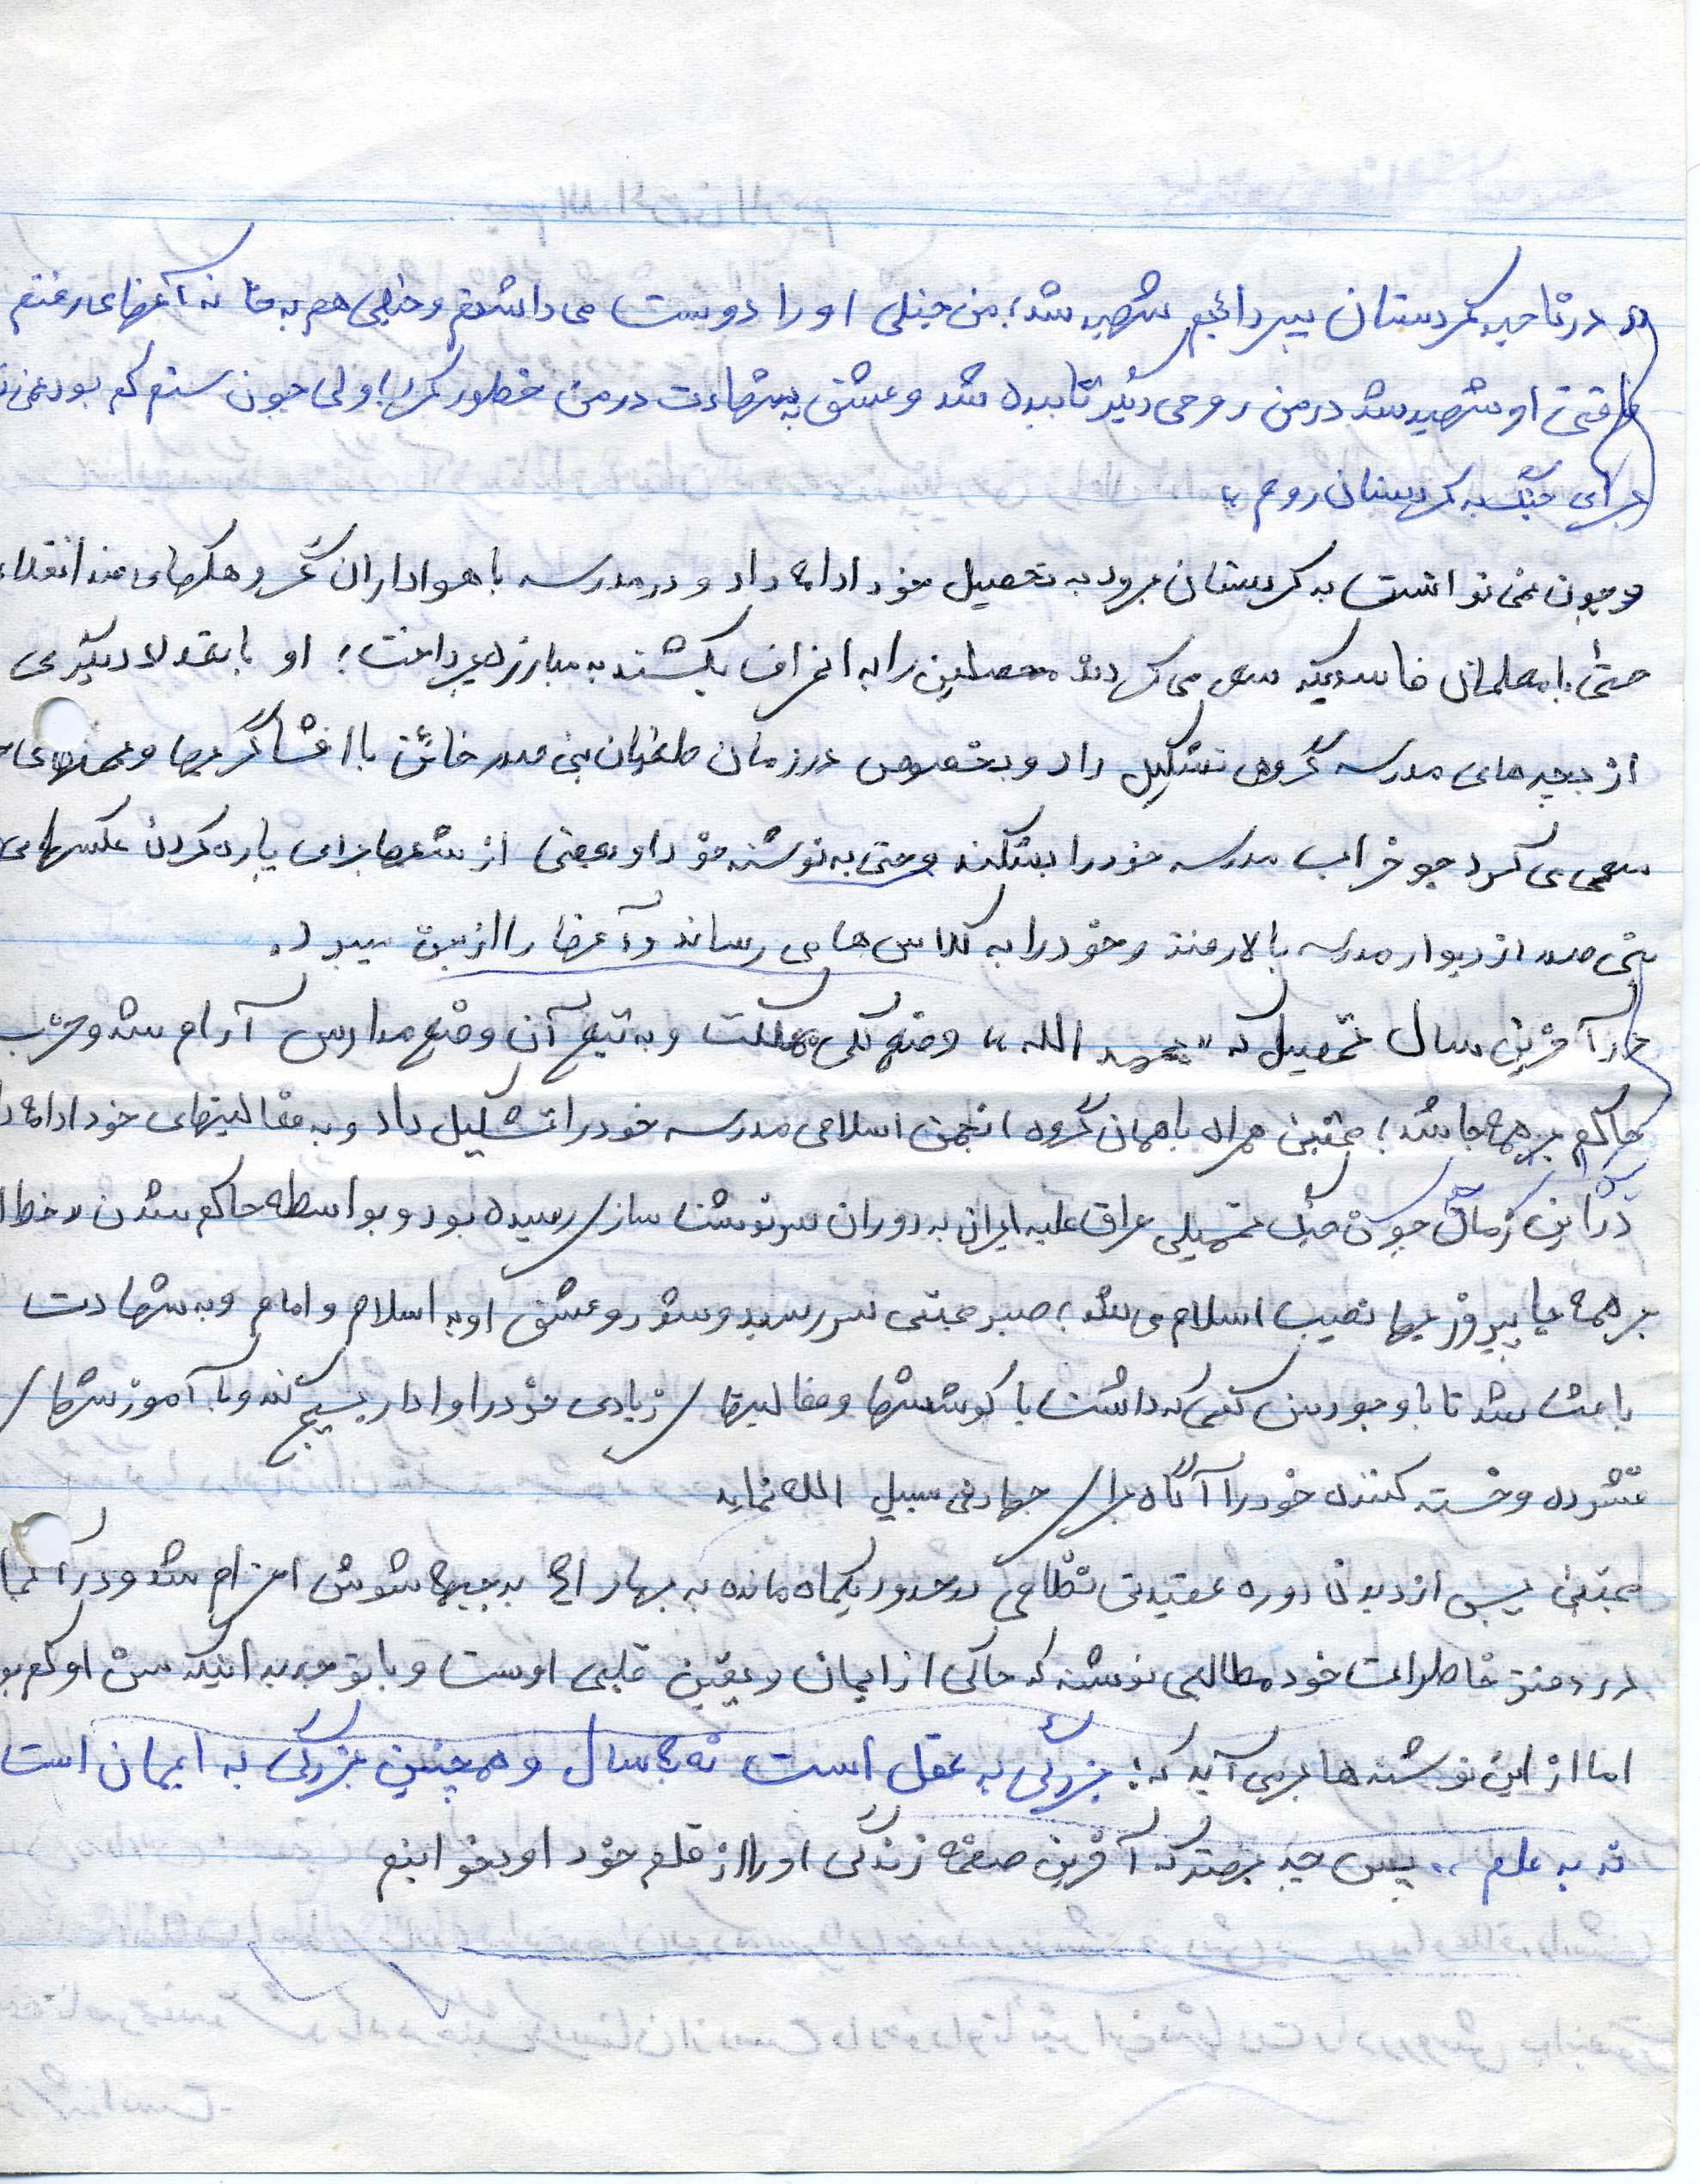 « در ناحیه کردستان پسر دائیم شهید شد؛ من خیلی او را دوست می داشتم و خیلی هم به خانه آنها می رفتم
وقتی او شهید شد در من روحی دیگر تابیده شد و عشق به شهادت در من خطور کرد؛ ولی چون سنم کم بود نمی
برای جنگ به کردستان روم »
و چون نمی توانست به کردستان برود به تحصیل خود ادامه داد و در مدرسه با هواداران گروهکهای ضد انقلاب
حتی با معلمان فاسدیکه سعی می کردند محصلین را به انحراف بکشند به مبارزه پرداخت؛ او با تعداد دیگری
از بچه های مدرسه گروهی تشکیل داد و بخصوص در زمان طغیان بنی صدر خائن با افشاگریها و
سعی می کرد جو خراب مدرسه خود را بشکند و حتی به نوشته خود او بعضی از شبها برای پاره کردن عکسهای
بنی صدر از دیوار مدرسه بالا رفته و خود را به کلاس ها می رساند و آنها را از بین میبرد.
در آخرین سال تحصیل که "بحمد الله" وضع کلی مملکت و به تبع آن وضع مدارس آرام شد و حزب
حاکم بر همه جا شد؛ مجتبی همراه با همان گروه انجمن اسلامی مدرسه خود را تشکیل داد و به فعالیتهای خود ادامه داد
در این زمان چون جنگ تحمیلی عراق علیه ایران به دوران سرنوشت ساز رسیده بود و بواسطه حاکم شدن خط
بر همه جا پیروزیها نصیب اسلام می شد؛ صبر مجتبی سر رسید و شور و عشق او به اسلام و امام و به شهادت
باعث شد تا با وجود سن کمی که داشت با کوششها و فعالیتهای زیادی خود را وادار بسیج کند و با آموزشهای
فشرده و خسته کننده خود را آماده برای جهاد فی سبیل الله نماید
مجتبی پس از دیدن دوره عقیدتی نظامی در حدود یکماه مانده به بهار به جبهه شوش اعزام شد و در آنجا
در دفتر خاطرات خود مطالبی نوشته که حاکی از ایمان و یقین قلبی اوست و با توجه به اینکه سن او کم بود
اما از این نوشته ها بر می آید که: بزرگی به عقل است نه به سال و همچنین بزرگی به ایمان است
نه به علم ،، پس چه بهتر که آخرین صفحه زندگی او را از قلم خود او بخوانیم